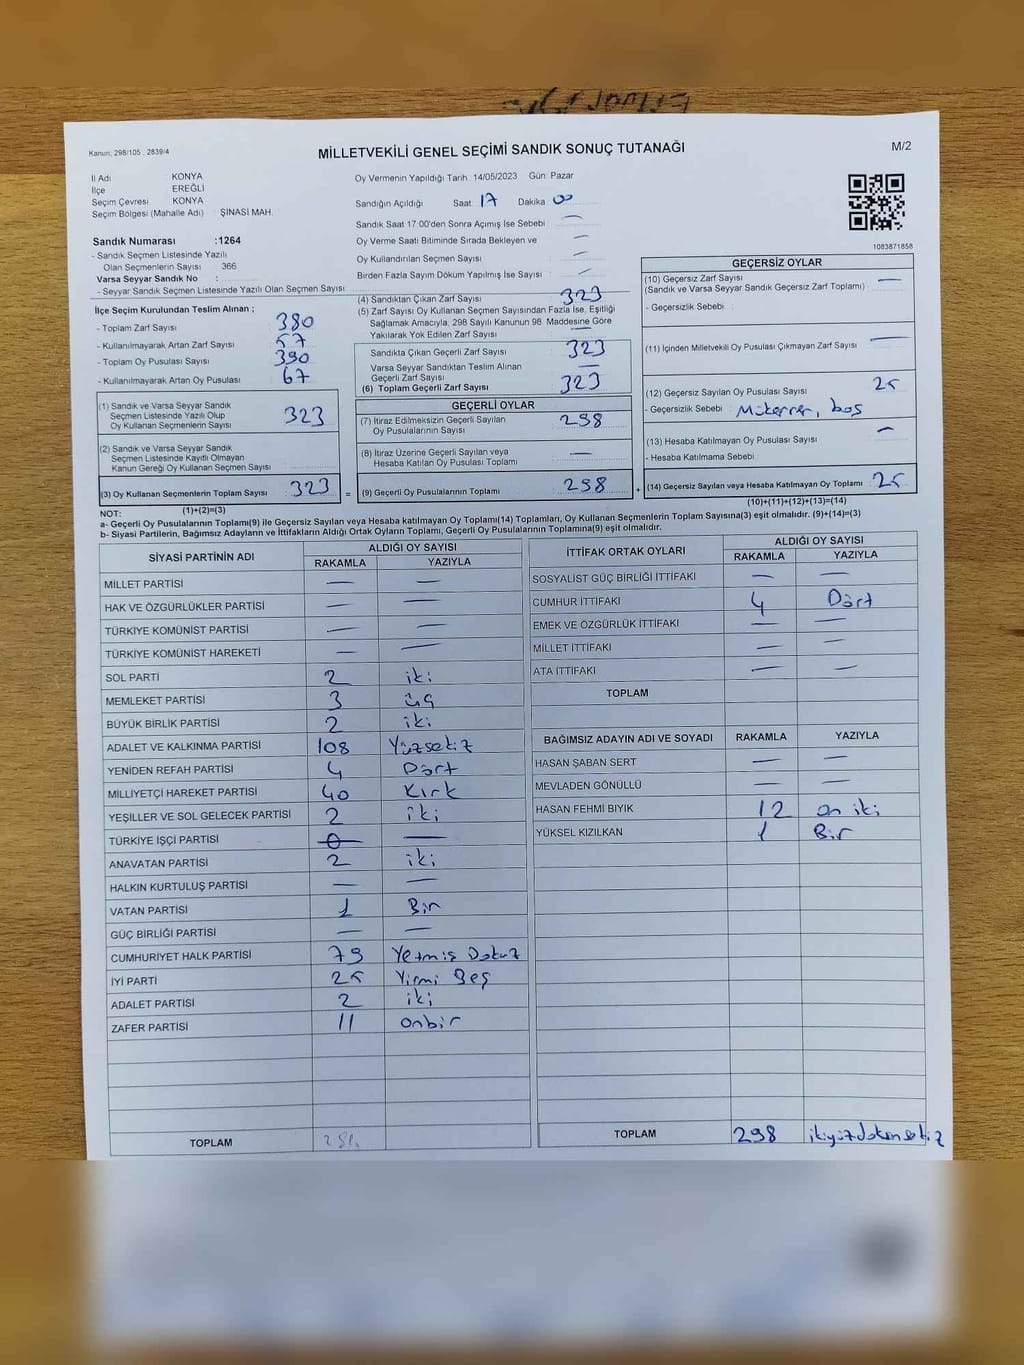 Kanun; 298/105 , 2839/4
MİLLETVEKİLİ GENEL SEÇİMİ SANDIK SONUÇ TUTANAĞI
M/2
İl Adı KONYA
İlçe EREĞLİ
Seçim Çevresi KONYA
Seçim Bölgesi (Mahalle Adı) : ŞİNASİ MAH.
Oy Vermenin Yapıldığı Tarih : 14/05/2023 Gün: Pazar
Sandığın Açıldığı Saat 17 Dakika 00
Sandık Saat 17:00'den Sonra Açımış İse Sebebi : —
Oy Verme Saati Bitiminde Sırada Bekleyen ve —
Oy Kullandırılan Seçmen Sayısı —
Birden Fazla Sayım Döküm Yapılmış İse Sayısı : —
1083871858
Sandık Numarası :1264
- Sandık Seçmen Listesinde Yazılı
Olan Seçmenlerin Sayısı 366
Varsa Seyyar Sandık No :
- Seyyar Sandık Seçmen Listesinde Yazılı Olan Seçmen Sayısı
İlçe Seçim Kurulundan Teslim Alınan ;
- Toplam Zarf Sayısı : 380
- Kullanılmayarak Artan Zarf Sayısı : 57
- Toplam Oy Pusulası Sayısı : 390
- Kullanılmayarak Artan Oy Pusulası : 67
(1) Sandık ve Varsa Seyyar Sandık
Seçmen Listesinde Yazılı Olup
Oy Kullanan Seçmenlerin Sayısı 323
(2) Sandık ve Varsa Seyyar Sandık
Seçmen Listesinde Kayıtlı Olmayan
Kanun Gereği Oy Kullanan Seçmen Sayısı
(3) Oy Kullanan Seçmenlerin Toplam Sayısı 323 =
(1)+(2)=(3)
(4) Sandıktan Çıkan Zarf Sayısı : 323
(5) Zarf Sayısı Oy Kullanan Seçmen Sayısından Fazla İse, Eşitliği
Sağlamak Amacıyla, 298 Sayılı Kanunun 98. Maddesine Göre
Yakılarak Yok Edilen Zarf Sayısı —
Sandıkta Çıkan Geçerli Zarf Sayısı : 323
Varsa Seyyar Sandıktan Teslim Alınan —
Geçerli Zarf Sayısı
(6) Toplam Geçerli Zarf Sayısı : 323
GEÇERLİ OYLAR
(7) İtiraz Edilmeksizin Geçerli Sayılan
Oy Pusulalarının Sayısı : 298
(8) İtiraz Üzerine Geçerli Sayılan veya
Hesaba Katılan Oy Pusulası Toplamı : —
(9) Geçerli Oy Pusulalarının Toplamı : 298 +
GEÇERSİZ OYLAR
(10) Geçersiz Zarf Sayısı : —
(Sandık ve Varsa Seyyar Sandık Geçersiz Zarf Toplamı)
- Geçersizlik Sebebi :
(11) İçinden Milletvekili Oy Pusulası Çıkmayan Zarf Sayısı : —
(12) Geçersiz Sayılan Oy Pusulası Sayısı : 25
- Geçersizlik Sebebi : Mükerrer, boş
(13) Hesaba Katılmayan Oy Pusulası Sayısı : —
- Hesaba Katılmama Sebebi :
(14) Geçersiz Sayılan veya Hesaba Katılmayan Oy Toplamı : 25
(10)+(11)+(12)+(13)=(14)
NOT:
a- Geçerli Oy Pusulalarının Toplamı(9) ile Geçersiz Sayılan veya Hesaba katılmayan Oy Toplamı(14) Toplamları, Oy Kullanan Seçmenlerin Toplam Sayısına(3) eşit olmalıdır. (9)+(14)=(3)
b- Siyasi Partilerin, Bağımsız Adayların ve İttifakların Aldığı Ortak Oyların Toplamı, Geçerli Oy Pusulalarının Toplamına(9) eşit olmalıdır.
SİYASİ PARTİNİN ADI ALDIĞI OY SAYISI
RAKAMLA YAZIYLA
MİLLET PARTİSİ — —
HAK VE ÖZGÜRLÜKLER PARTİSİ — —
TÜRKİYE KOMÜNİST PARTİSİ — —
TÜRKİYE KOMÜNİST HAREKETİ — —
SOL PARTİ 2 iki
MEMLEKET PARTİSİ 3 üç
BÜYÜK BİRLİK PARTİSİ 2 iki
ADALET VE KALKINMA PARTİSİ 108 Yüzsekiz
YENİDEN REFAH PARTİSİ 4 Dört
MİLLİYETÇİ HAREKET PARTİSİ 40 Kırk
YEŞİLLER VE SOL GELECEK PARTİSİ 2 iki
TÜRKİYE İŞÇİ PARTİSİ 0 —
ANAVATAN PARTİSİ 2 iki
HALKIN KURTULUŞ PARTİSİ — —
VATAN PARTİSİ 1 Bir
GÜÇ BİRLİĞİ PARTİSİ — —
CUMHURİYET HALK PARTİSİ 79 Yetmiş Dokuz
İYİ PARTİ 25 Yirmi Beş
ADALET PARTİSİ 2 iki
ZAFER PARTİSİ 11 onbir
TOPLAM
İTTİFAK ORTAK OYLARI ALDIĞI OY SAYISI
RAKAMLA YAZIYLA
SOSYALİST GÜÇ BİRLİĞİ İTTİFAKI — —
CUMHUR İTTİFAKI 4 Dört
EMEK VE ÖZGÜRLÜK İTTİFAKI — —
MİLLET İTTİFAKI — —
ATA İTTİFAKI — —
TOPLAM
BAĞIMSIZ ADAYIN ADI VE SOYADI RAKAMLA YAZIYLA
HASAN ŞABAN SERT — —
MEVLADEN GÖNÜLLÜ — —
HASAN FEHMİ BIYIK 12 on iki
YÜKSEL KIZILKAN 1 Bir
TOPLAM 298 ikiyüzdoksansekiz